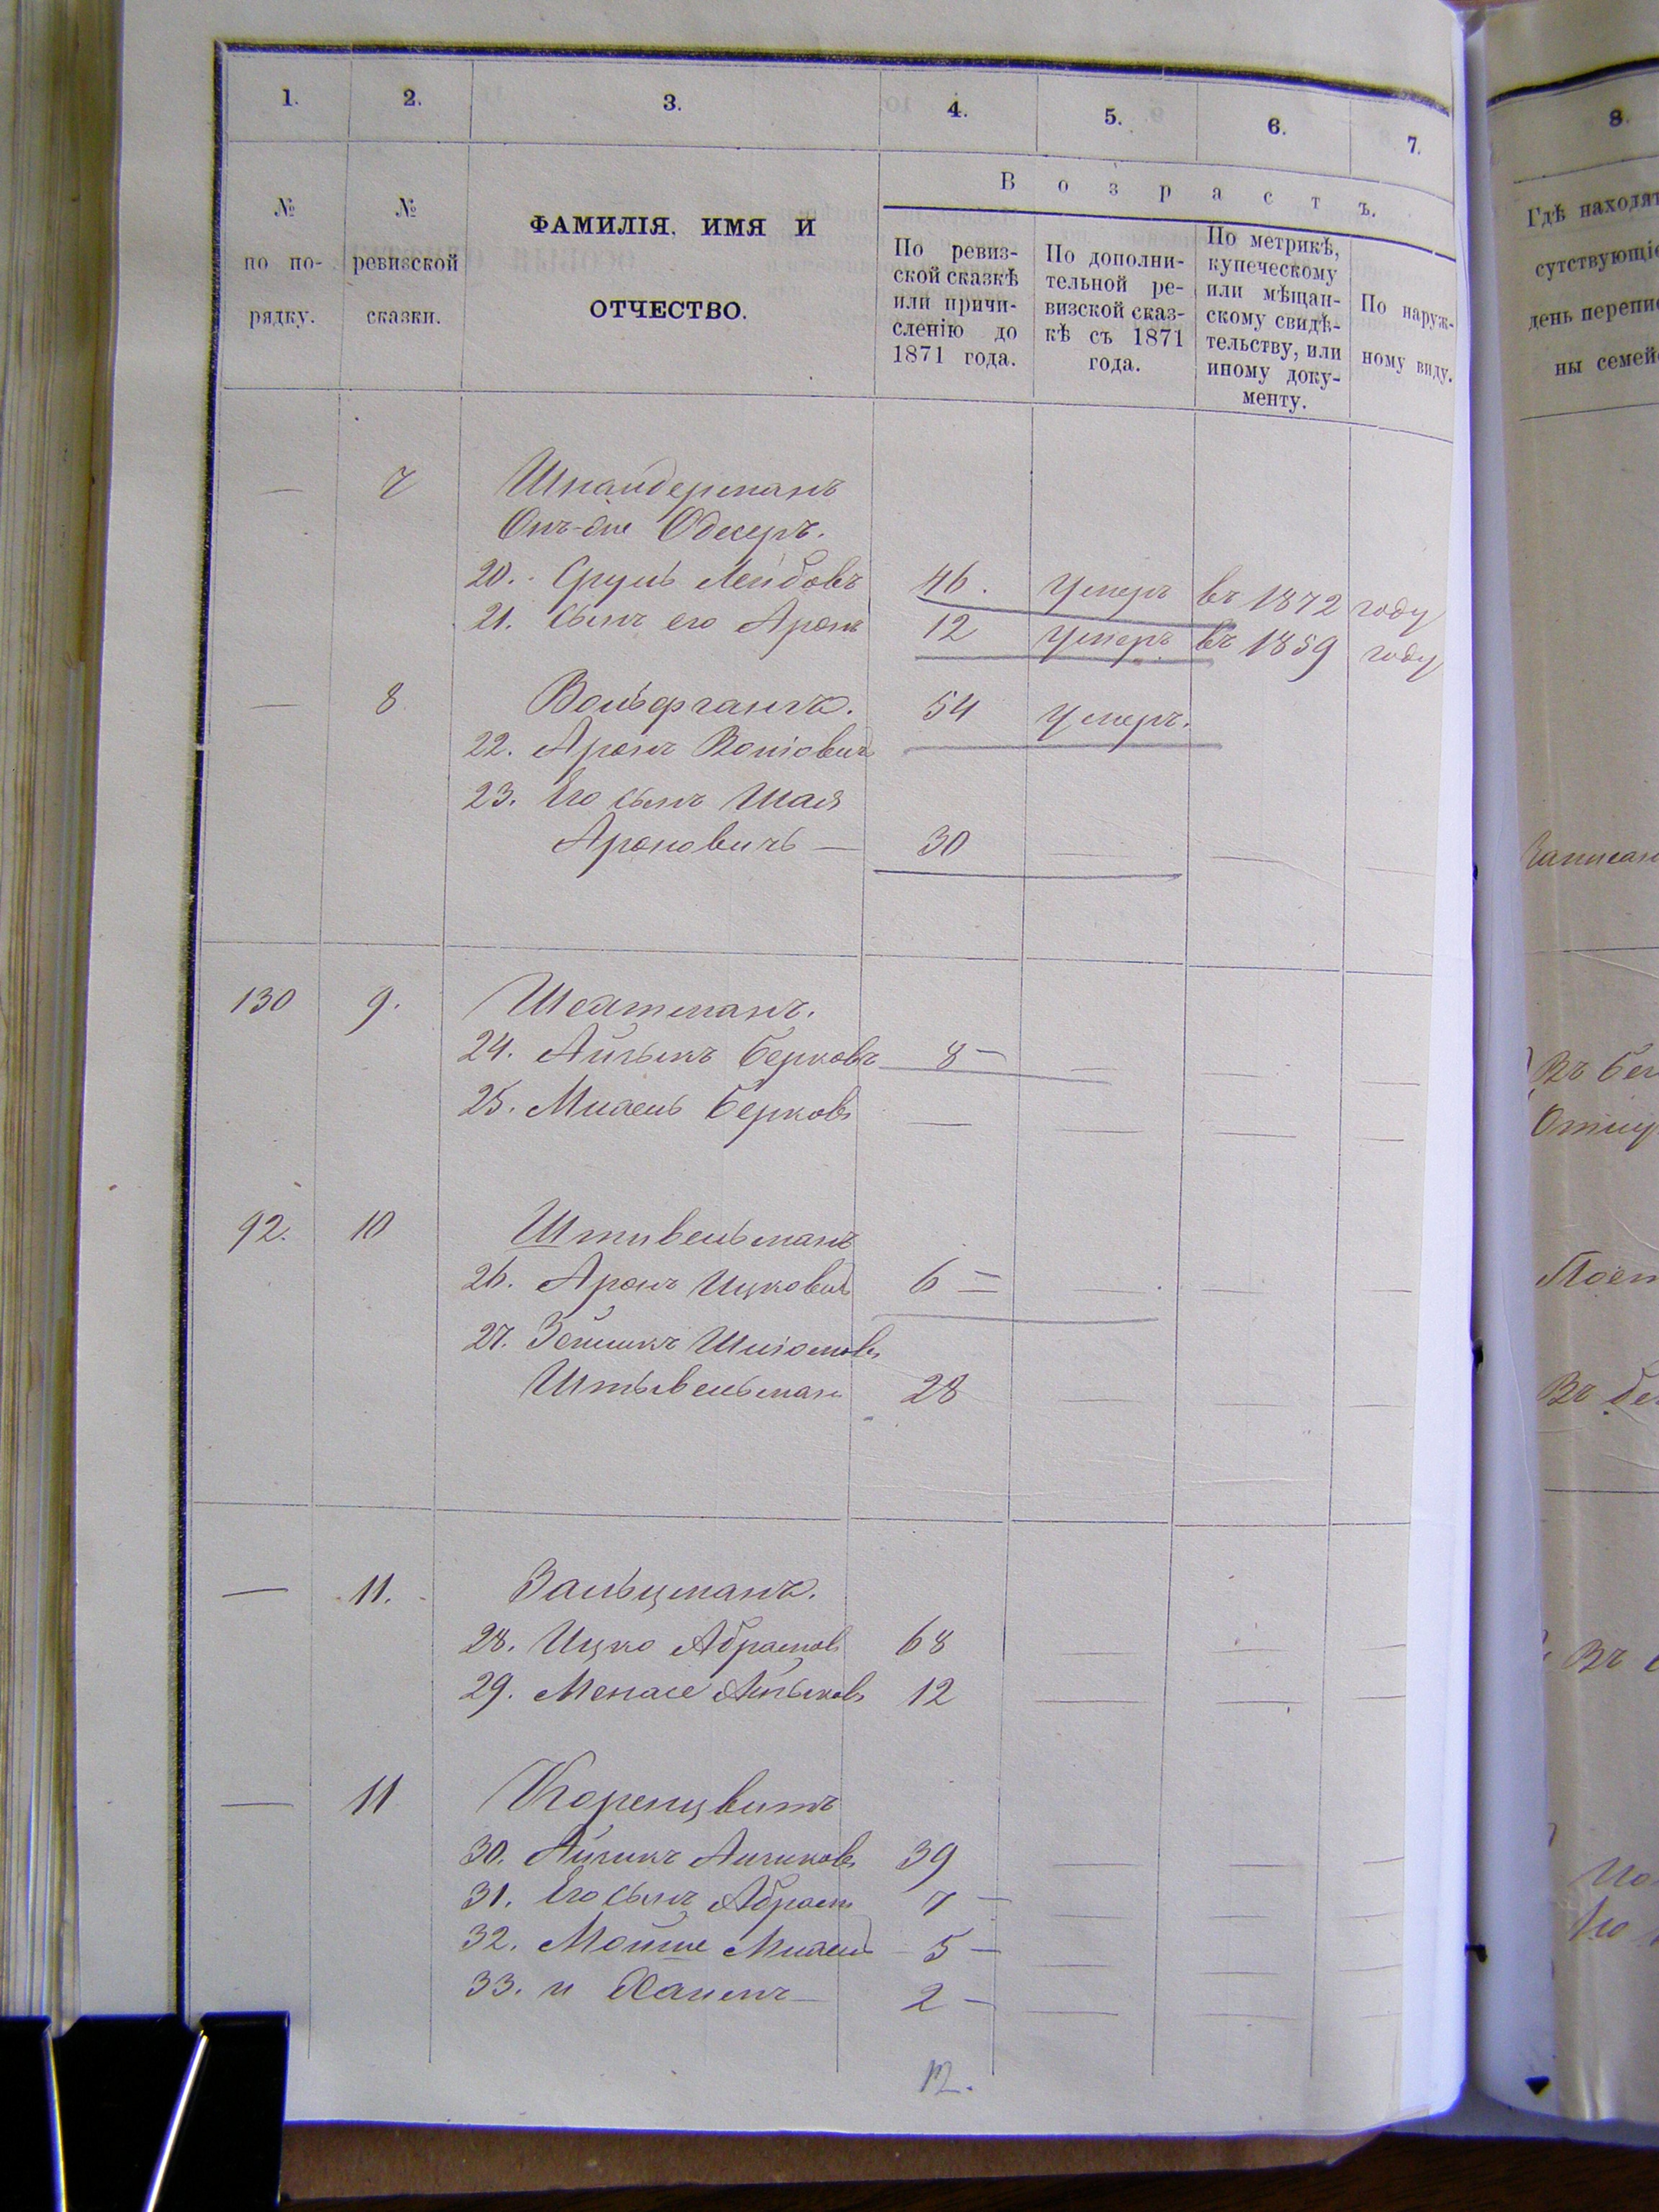 1. 2. 3. 4. 5. 6. 7.
№ по по-рядку.
№ ревизской сказки.
ФАМИЛІЯ, ИМЯ И ОТЧЕСТВО.
В о з р а с т ъ.
По ревиз-
ской сказкѣ
или причи-
сленію до
1871 года.
По дополни-
тельной ре-
визской сказ-
кѣ съ 1871
года.
По метрикѣ,
купеческому
или мѣщан-
скому свидѣ-
тельству, или
иному доку-
менту.
По наруж-
ному виду.
— 7 Шнайдерманъ
Онъ-же Одесеръ.
20. Сруль Лейбовъ 46. Умеръ въ 1872 году
21. Сынъ его Аронъ 12 Умеръ въ 1859 году
— 8 Вольфгангъ. 54 Умеръ.
22. Аронъ Волiовичъ
23. Его сынъ Шая
Ароновичъ — 30 — — —
130 9. Шейтманъ.
24. Айзыкъ Берковъ 8 — — — —
25. Михель Берковъ — — — —
92. 10 Штивельманъ
26. Аронъ Ицковичъ 6 = — — —
27. Зейликъ Шліомовъ
Штывельманъ 28 — — —
— 11. Зальцманъ.
28. Ицко Абрамовъ 68 — — —
29. Менасе Айзыковъ 12 — — —
— 11 Коренцвитъ
30. Айзикъ Айзиковъ 39 — — —
31. Его сынъ Абрамъ 7 — — — —
32. Мойше Михель 5 — — — —
33. и Хаимъ — 2 — — — —
12.
8.
Гдѣ находят
сутствующіе
день перепис
ны семей
Записан
Въ бе
Отлу
Въ бе
Въ